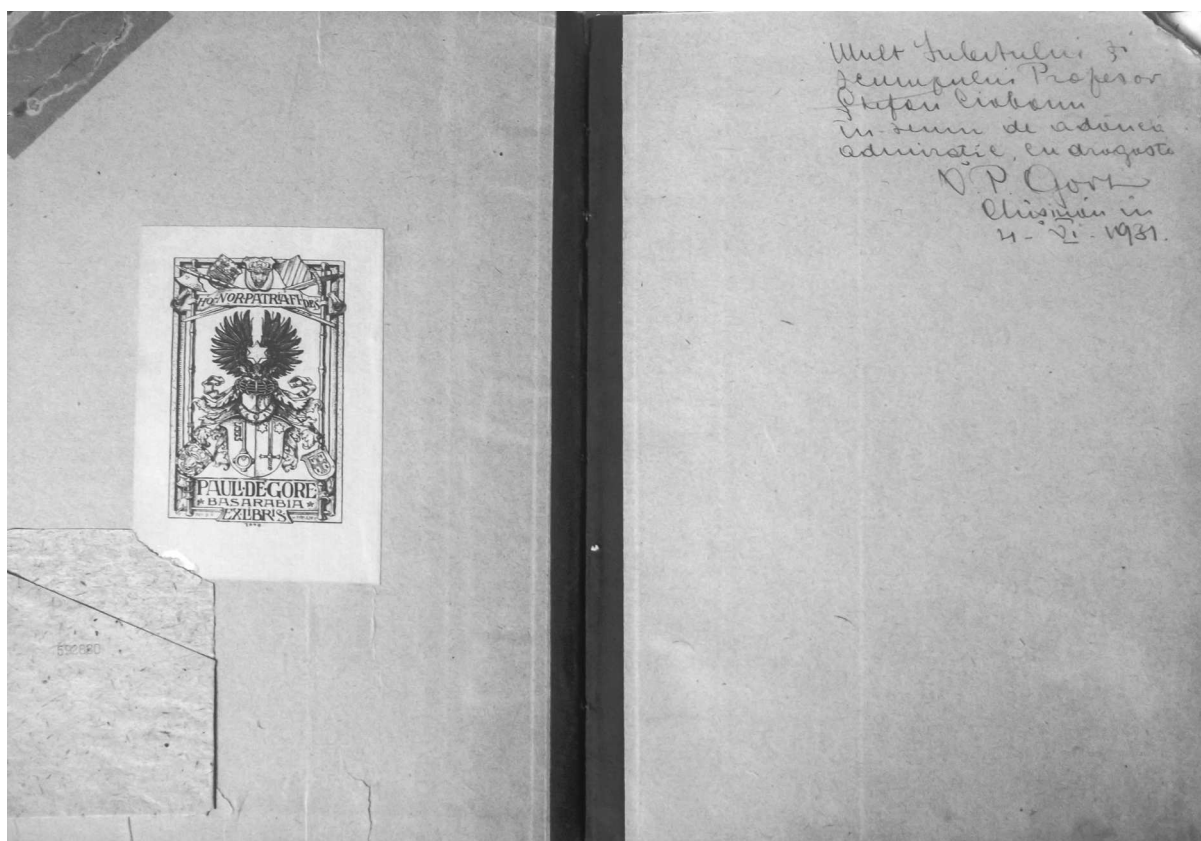 HONOR·PATRIA·FIDES
PAULI·DE·GORE
BASARABIA
EX·LIBRIS
592680
Mult Iubitului și
scumpului Profesor
Ștefan Ciobanu
în semn de adâncă
admirație, cu dragoste
P. Gore
Chișinău in
4 - VI - 1931.